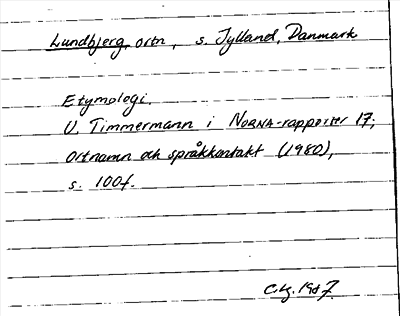 Lundbjerg, ortn, s. Jylland, Danmark
Etymologi.
U. Timmermann i NORNA-rapporter 17;
Ortnamn och språkkontakt (1980),
s. 100f.
1987